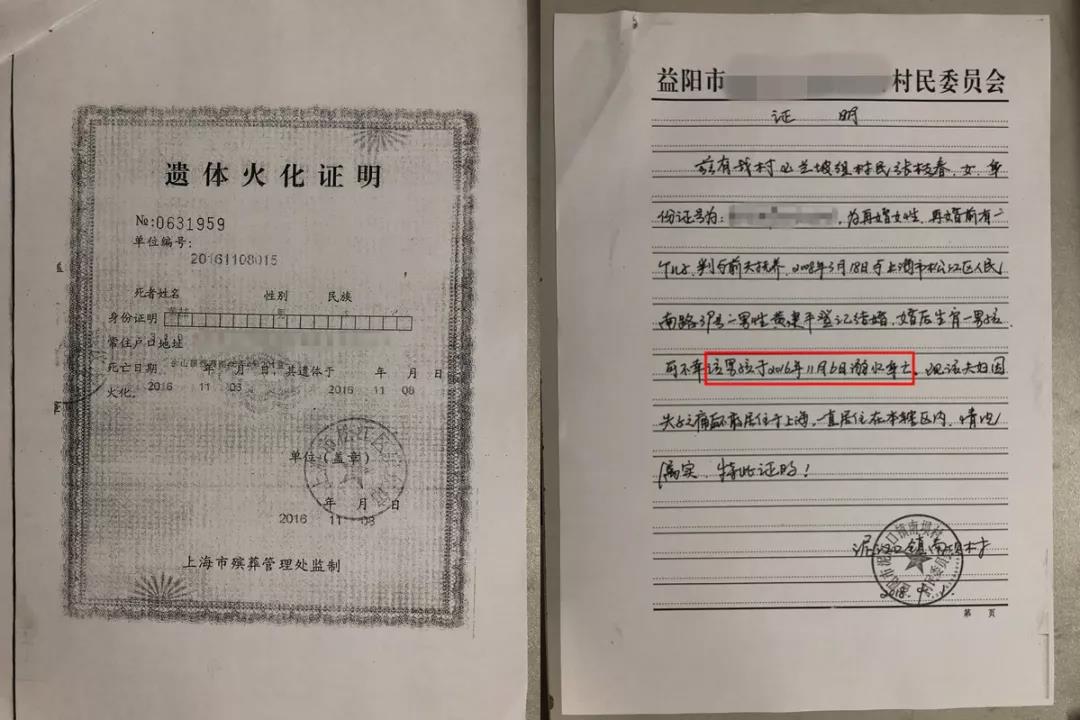 遗体火化证明
№:0631959
单位编号:
20161108015
死者姓名 性别 民族
身份证明
常住户口地址
死亡日期 年 月 日,其遗体于 年 月 日
2016 11 03 2016 11 08
火化。
单位(盖章)
年 月 日
2016 11 08
上海市殡葬管理处监制
益阳市 村民委员会
证 明
兹有我村 组村民张枝春,女,身
份证号为: ,为再婚女性,再婚前有一
个儿子,判与前夫抚养,2008年3月18日与上海市松江区人民
南路 号一男性黄 平登记结婚,婚后生育一男孩,
可不幸该男孩于2016年11月6日溺水身亡,现该夫妇因
失子之痛 居住于上海,一直居住在本辖区内,情况
属实,特此证明!
镇南坝村
2018.
第 页